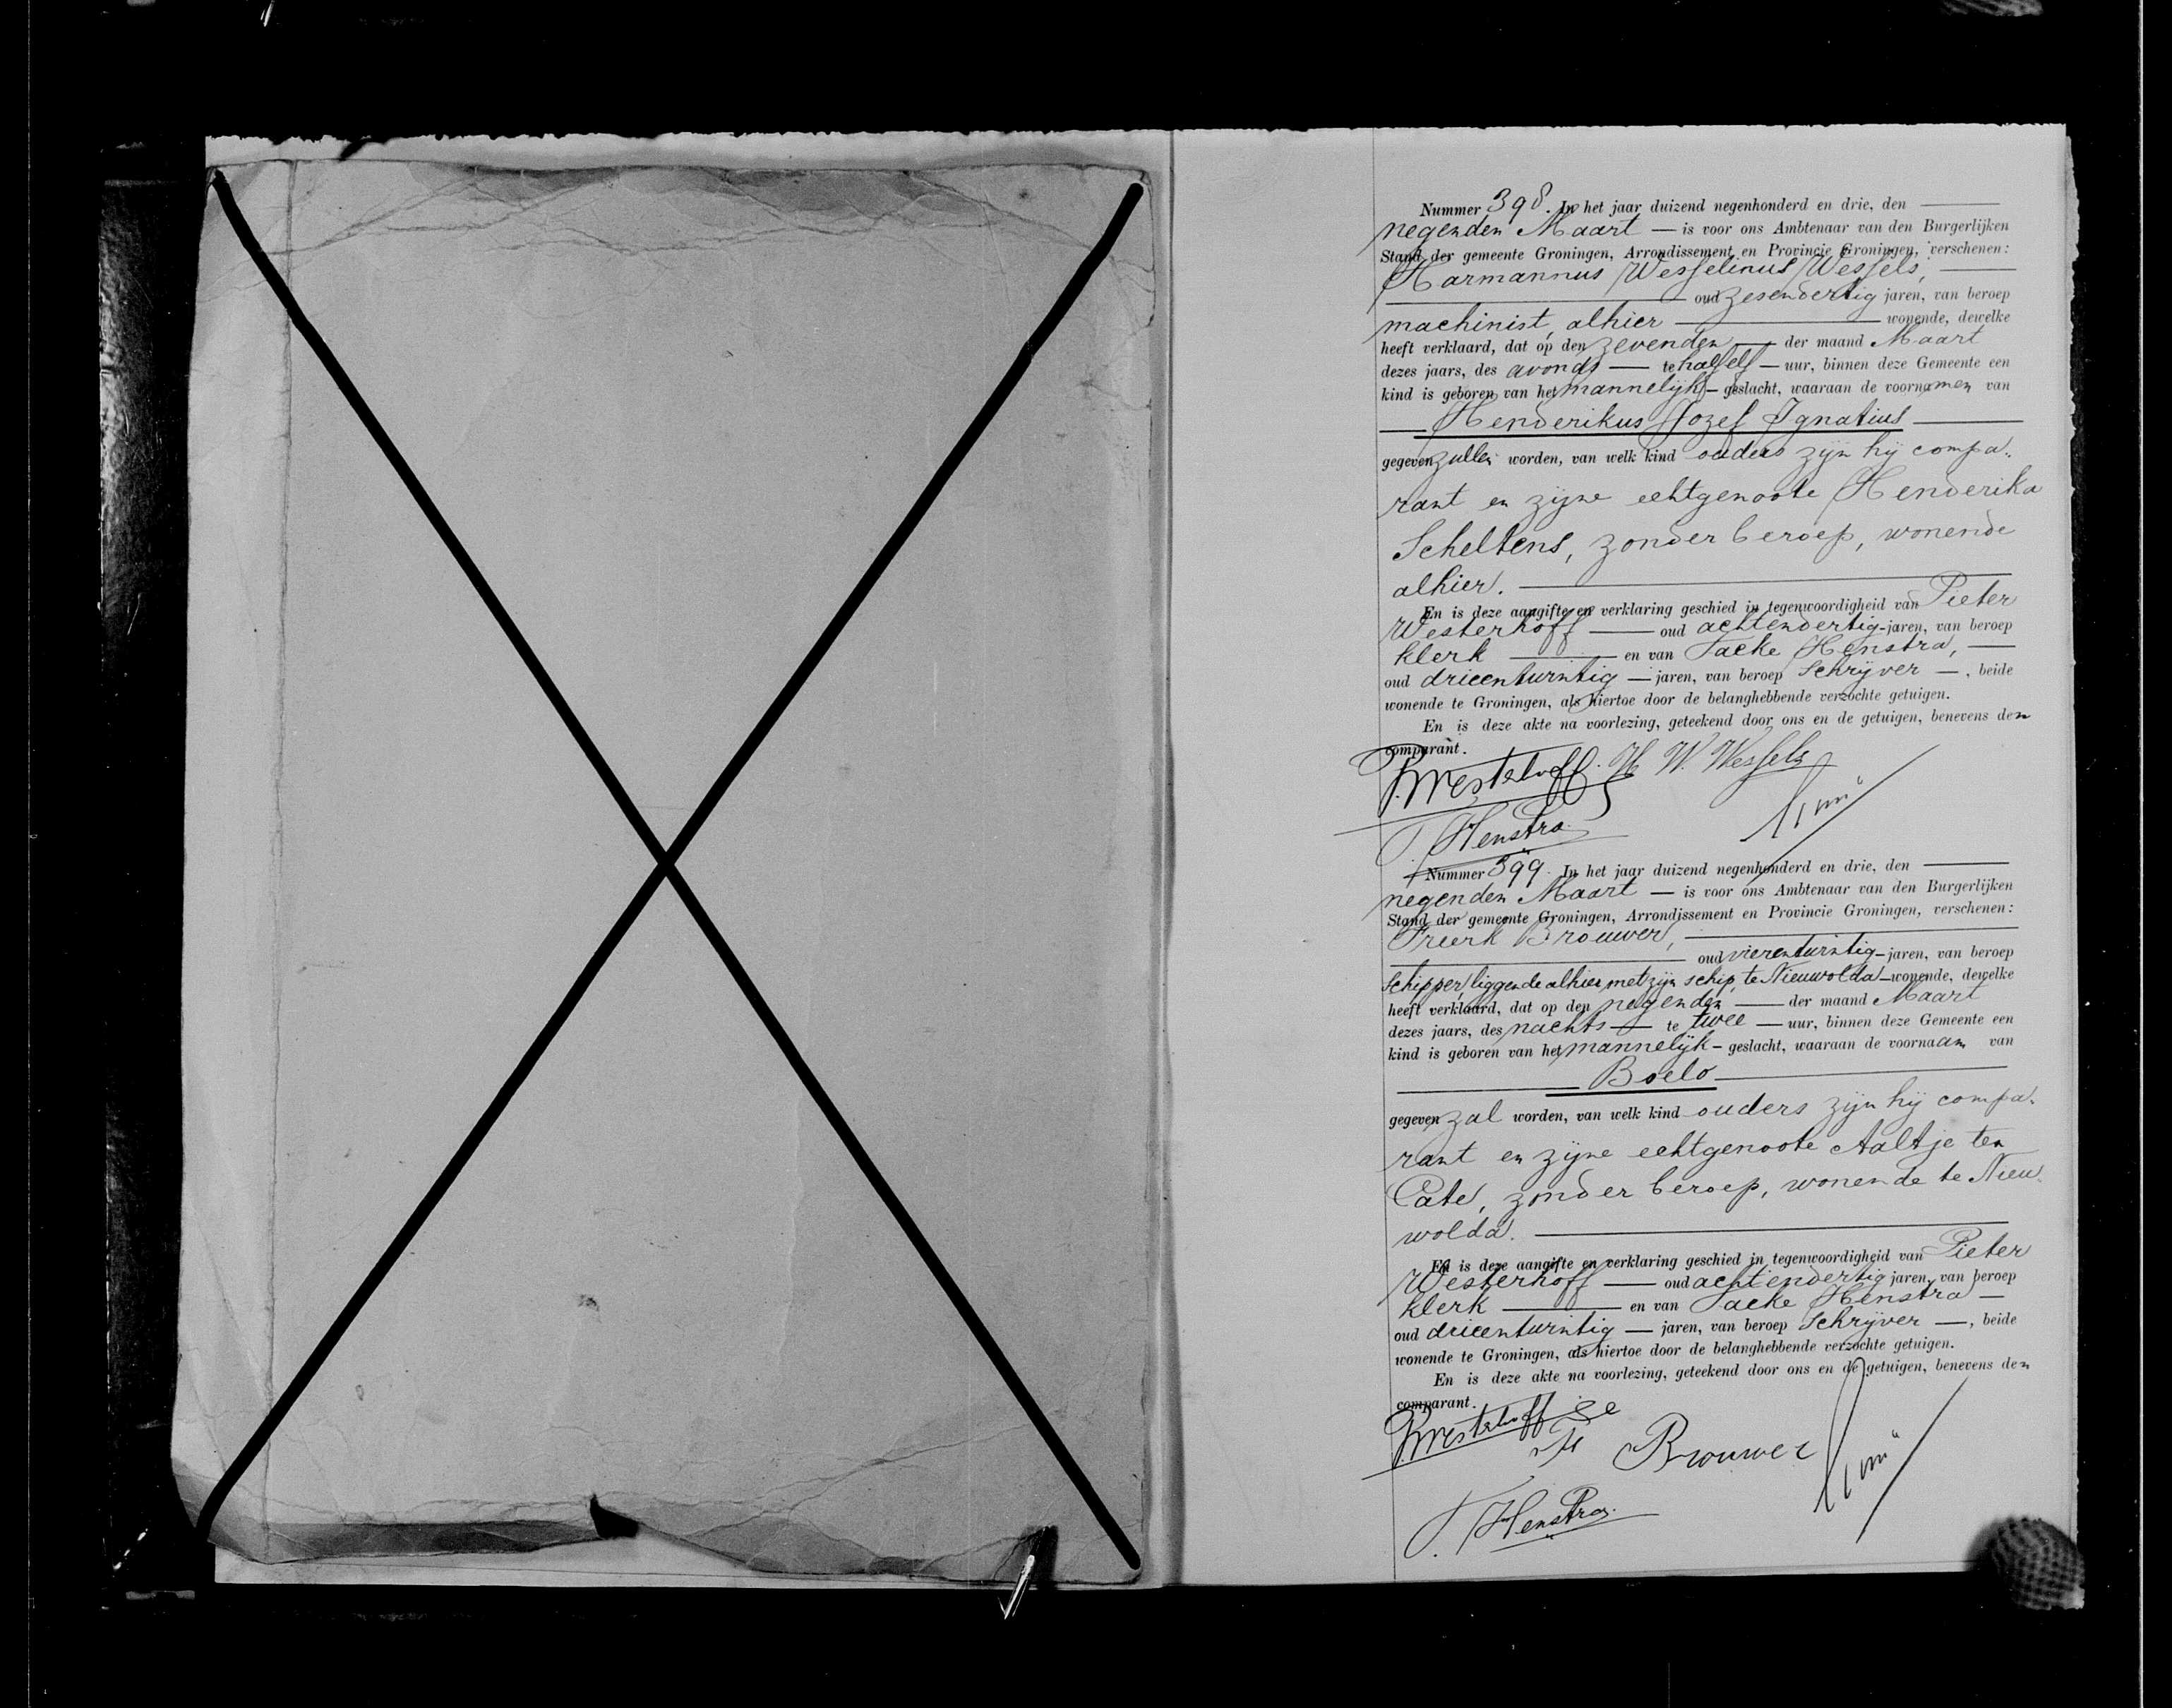 Nummer 398. In het jaar duizend negenhonderd en drie, den
negenden Maart — is voor ons Ambtenaar van den Burgerlijken
Stand der gemeente Groningen, Arrondissement en Provincie Groningen, verschenen:
Harmannus Wesselinus Wessels,
oud zesendertig jaren, van beroep
machinist, alhier — wonende, dewelke
heeft verklaard, dat op den zevenden — der maand Maart
dezes jaars, des avonds — te half elf — uur, binnen deze Gemeente een
kind is geboren van het mannelijk — geslacht, waaraan de voornamen van
Henderikus Jozef Ignatius
gegeven zullen worden, van welk kind ouders zijn hij compa-
rant en zijne echtgenoote Henderika
Scheltens, zonder beroep, wonende
alhier.
En is deze aangifte en verklaring geschied in tegenwoordigheid van Pieter
Westerhoff — oud achtendertig jaren, van beroep
klerk — en van Tacke Henstra,
oud drieentwintig — jaren, van beroep schrijver —, beide
wonende te Groningen, als hiertoe door de belanghebbende verzochte getuigen.
En is deze akte na voorlezing, geteekend door ons en de getuigen, benevens den
comparant.
P. Westerhoff. H. W. Wessels
T. Henstra.
Nummer 399. In het jaar duizend negenhonderd en drie, den
negenden Maart — is voor ons Ambtenaar van den Burgerlijken
Stand der gemeente Groningen, Arrondissement en Provincie Groningen, verschenen:
Freerk Brouwer,
oud vierentwintig — jaren, van beroep
schipper, liggende alhier met zijn schip, te Nieuwolda — wonende, dewelke
heeft verklaard, dat op den negenden — der maand Maart
dezes jaars, des nachts — te twee — uur, binnen deze Gemeente een
kind is geboren van het mannelijk — geslacht, waaraan de voornaam van
Boelo
gegeven zal worden, van welk kind ouders zijn hij compa-
rant en zijne echtgenoote Aaltje ten
Cate, zonder beroep, wonende te Nieu-
wolda.
En is deze aangifte en verklaring geschied in tegenwoordigheid van Pieter
Westerhoff — oud achtendertig jaren, van beroep
klerk — en van Tacke Henstra —
oud drieentwintig — jaren, van beroep schrijver —, beide
wonende te Groningen, als hiertoe door de belanghebbende verzochte getuigen.
En is deze akte na voorlezing, geteekend door ons en de getuigen, benevens den
comparant.
P. Westerhoff
F Brouwer
T. Henstra.